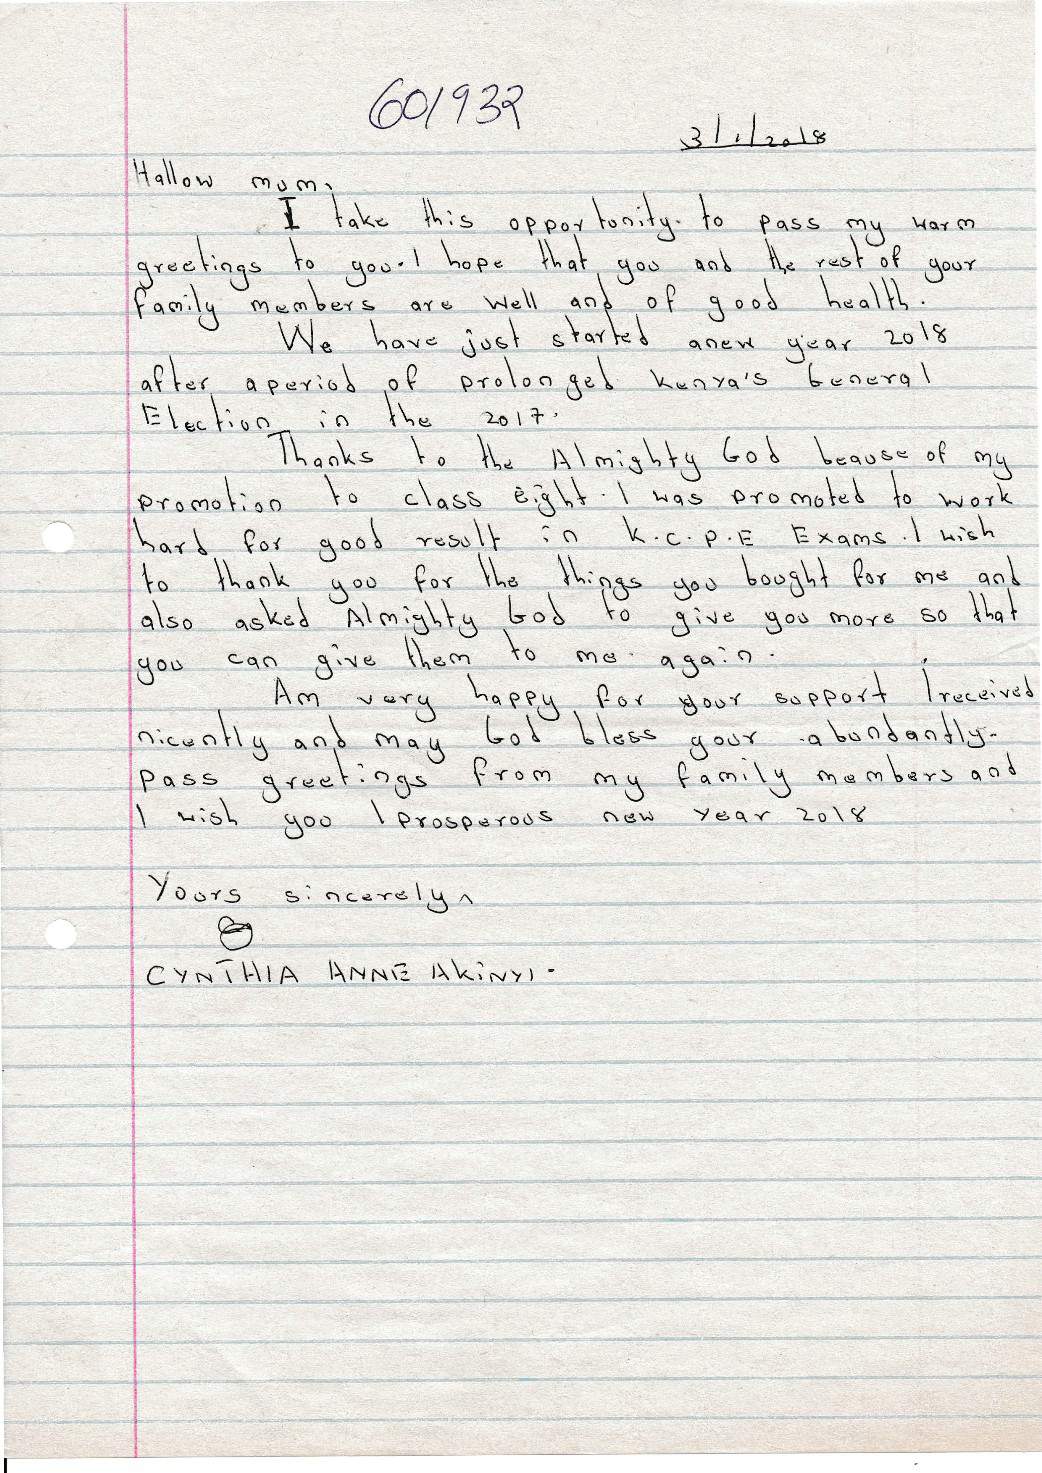 601932
3/1/2018
Hallow mum,
I take this opportunity. to pass my warm
greetings to you. I hope that you and the rest of your
family members are well and of good health.
We have just started anew year 2018
after aperiod of prolonged Kenya's General
Election in the 2017.
Thanks to the Almighty God beause of my
promotion to class eight. I was promoted to work
hard for good result in K.C.P.E Exams. I wish
to thank you for the things you bought for me and
also asked Almighty God to give you more so that
you can give them to me again.
Am very happy for your support I received
nicently and may God bless your abundantly.
Pass greetings from my family members and
I wish you 1 prosperous new year 2018
Yours sincerely,
CYNTHIA ANNE AKINYI.